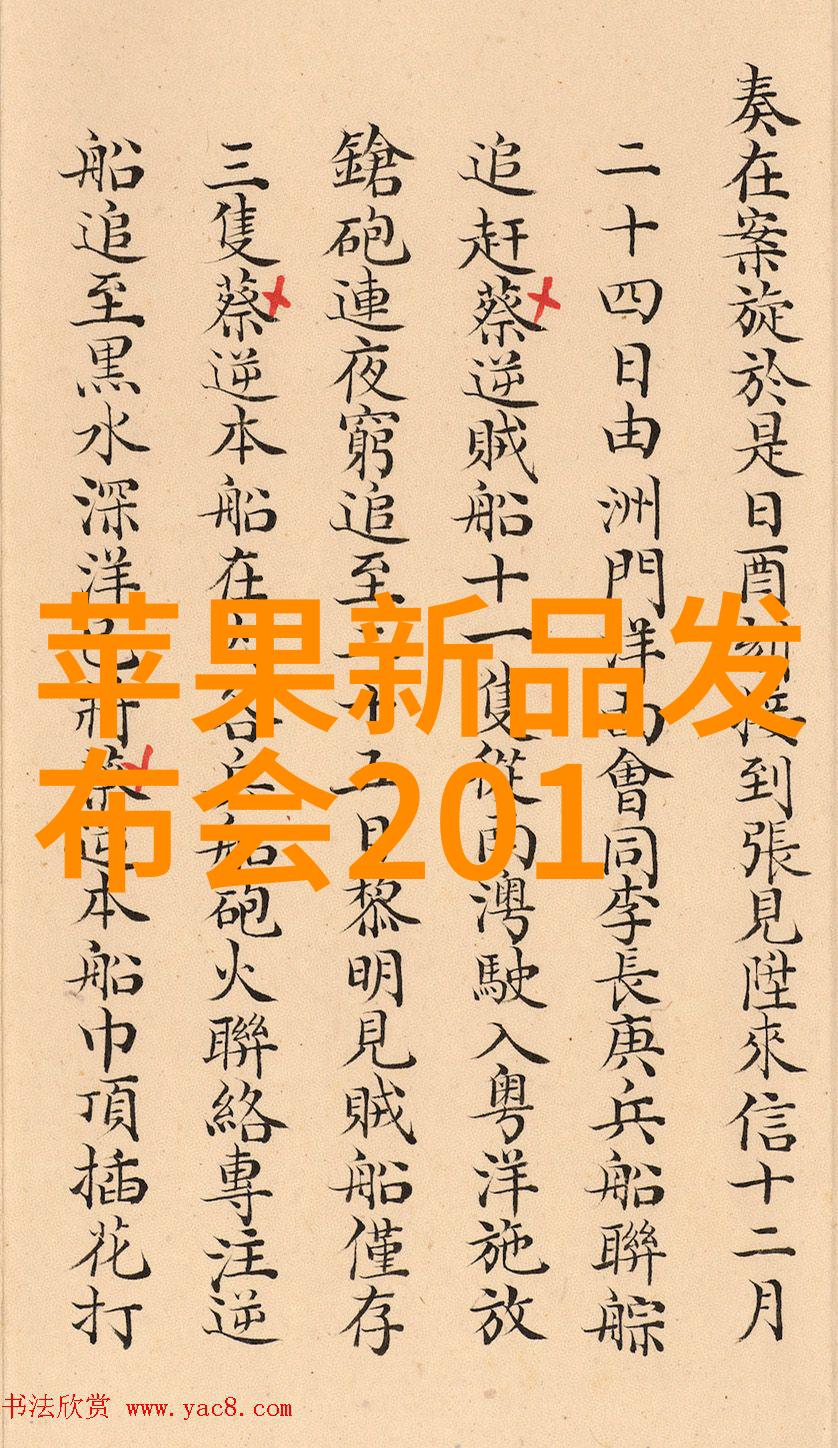 奏在案旋於是日酉刻接到張見陞來信十二月
二十四日由洲門洋面會同李長庚兵船聯䑸
追赶蔡逆賊船十一隻從南澳駛入粤洋施放
鎗砲連夜窮追至二十五日黎明見賊船僅存
三隻蔡逆本船在内各兵船砲火聯絡專注逆
船追至黒水深洋已將蔡逆本船巾頂插花打
苹果新品发
布会201
书法欣赏 www.yac8.com